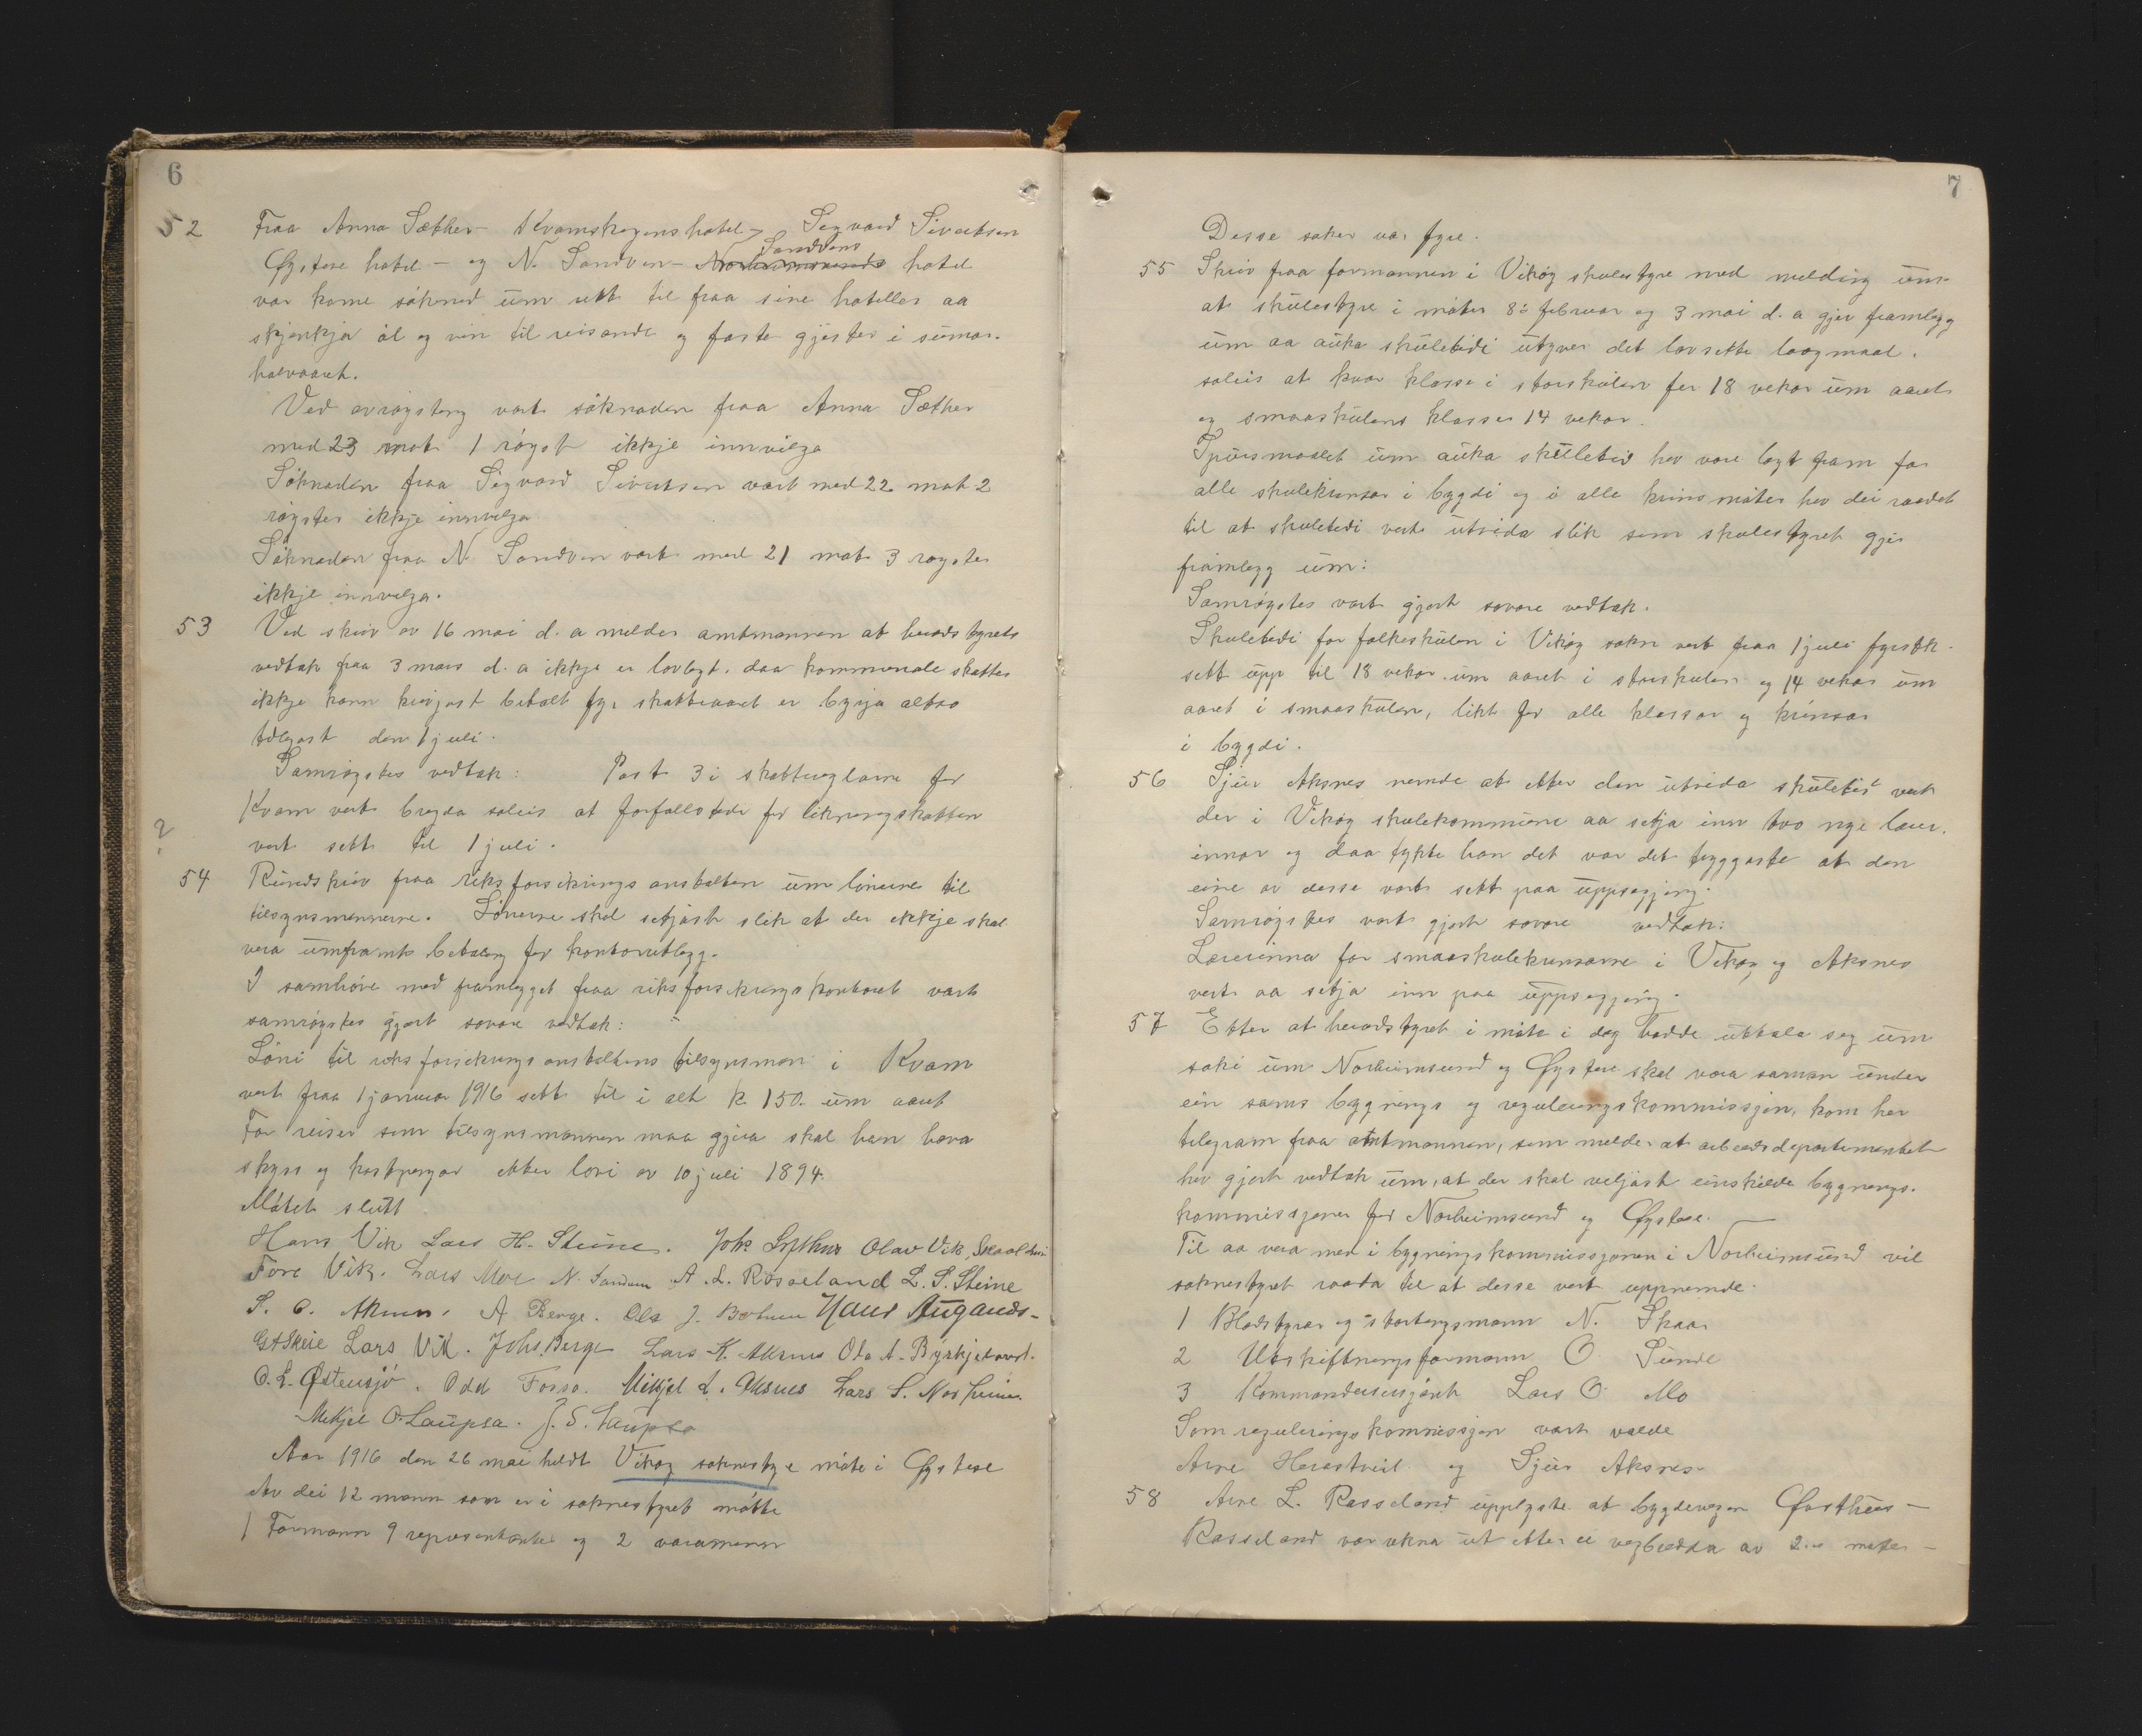 6
52 Fraa Anna Sæther - Kvamskogens hotel, Segvard Sivertsen
Øystese hotel - og N. Sandven - Norheimsunds Sandvens hotel
var kome söknad um rett til fraa sine hoteller aa
skjenkja öl og vin til reisande og faste gjester i sumar-
halvaaret.
Ved avrøysting vart söknaden fraa Anna Sæther
med 23 mot 1 röyst ikkje innvilga
Söknaden fraa Segvard Sivertsen vart med 22 mot 2
röyster ikkje innvilga
Söknaden fraa N. Sandven vart med 21 mot 3 røyster
ikkje innvilga.
53 Ved skriv av 16 mai d. a melder amtmannen at heradstyrets
vedtak fraa 3 mars d. a ikkje er lovlegt, daa kommunale skatter
ikkje kann krevjast betalt fyr skatteaaret er byrja altso
tidlegast den 1 juli.
Samröystes vedtak: Post 3 i skattereglarne for
Kvam vert brigda soleis at forfallstidi for likningskatten
vert sett til 1 juli.
?
54 Rundskriv fraa riksforsikringsanstalten um lönerne til
tilsynsmennerne. Lönerne skal setjast slik at der ikkje skal
vera umframt betaling for kontorutlegg.
I samhöve med framlegget fraa riksforsikringskontoret vart
samröystes gjort sovore vedtak:
Löni til riksforsikringsanstaltens tilsynsman i Kvam
vert fraa 1 januar 1916 sett til i alt k 150. um aaret
For reiser som tilsynsmannen maa gjera skal han hava
skyss og kostpengar etter lovi av 10 juli 1894.
Mötet slutt
Hans Vik Lars H. Steine. Johs Lofthus Olav Vik, Skaalheim
Tore Vik. Lars Moe N. Sandven A. L. Rosseland L. S. Steine
S. O. Aksnes, A Berge. Ola J. Botnen Hans Augands-
G A Skeie Lars Vik. Johs. Berge Lars K. Aksnes Ola A. Byrkjeland.
O. L. Østensjö. Odd Fosse. Mikjel L. Aksnes Lars S. Norheim.
Mikjel O. Laupsa. J. S. Laupsa
Aar 1916 den 26 mai heldt Vikøy soknestyre möte i Øystese
Av dei 12 mann som er i soknestyret mötte
1 Formann 9 representanter og 2 varamenn
7
Desse saker var fyre.
55 Skriv fraa formannen i Vikøy skulestyre med melding um
at skulestyre i möter 8de februar og 3 mai d. a gjer framlegg
um aa auka skuletidi utyver det lovsette laagmaal.
soleis at kvar klasse i storskulen fer 18 vekor um aaret
og smaaskulens klasser 14 vekor.
Spursmaalet um auka skuletid hev vore lagt fram for
alle skulekrinsar i bygdi og i alle krinsmöter hev dei raadet
til at skuletidi vert utvida slik som skulestyret gjer
framlegg um:
Samröystes vart gjort sovore vedtak.
Skuletidi for folkeskulen i Vikøy sokn vert fraa 1 juli fyrstk.
sett upp til 18 vekor um aaret i storskulen og 14 vekor um
aaret i smaaskulen, likt for alle klassar og krinsar
i bygdi.
56 Sjur Aksnes nemde at etter den utvida skuletid vert
der i Vikøy skulekommune aa setja inn tvo nye lærer-
innor og daa tykte han det var det tryggaste at den
eine av desse vart sett paa uppsegjing.
Samröystes vart gjort sovore vedtak:
Lærerinna for smaaskulekrinsarne i Vikøy og Aksnes
vert aa setja inn paa uppsegjing.
57 Etter at heradstyret i möte i dag hadde uttala seg um
saki um Norheimsund og Øystese skal vera saman under
ein sams bygnings og reguleringskommissjon, kom her
telegram fraa amtmannen, som melder at arbeidsdepartementet
hev gjort vedtak um, at der skal veljast einskilde bygnings-
kommissjoner for Norheimsund og Øystese.
Til aa vera med i bygningskommissjonen i Norheimsund vil
soknestyret raada til at desse vert uppnemde.
1 Bladstyrar og stortingsmann N. Skaar
2 Utskiftningsformann O. Sunde
3 Kommandersersjant Lars O. Mo
Som reguleringskommissjon vart valde
Arne Herastveit og Sjur Aksnes
58 Arne L. Rosseland upplyste at bygdevegen Østhus -
Rosseland var rekna ut etter ei vegbredda av 2.00 meter -